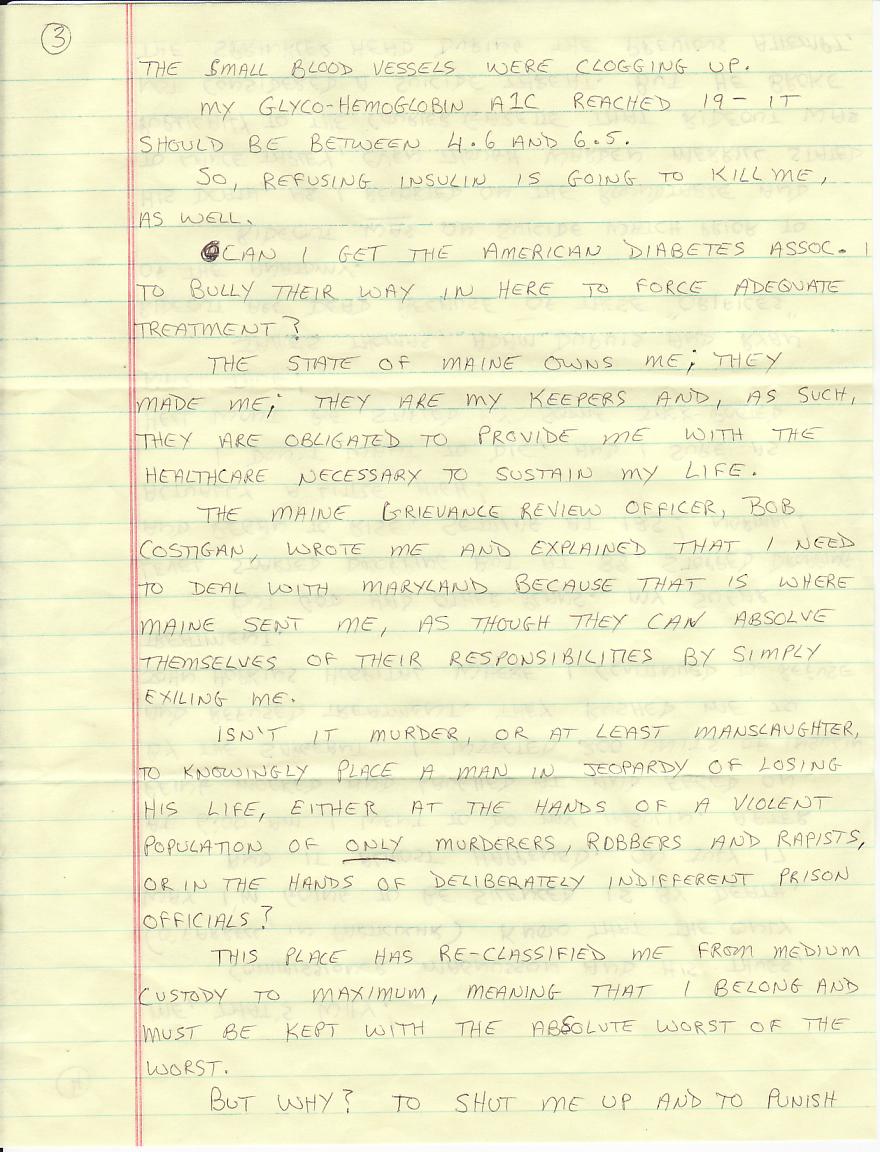 3
THE SMALL BLOOD VESSELS WERE CLOGGING UP.
MY GLYCO-HEMOGLOBIN A1C REACHED 19 - IT
SHOULD BE BETWEEN 4.6 AND 6.5.
SO, REFUSING INSULIN IS GOING TO KILL ME,
AS WELL.
CAN I GET THE AMERICAN DIABETES ASSOC.
TO BULLY THEIR WAY IN HERE TO FORCE ADEQUATE
TREATMENT?
THE STATE OF MAINE OWNS ME; THEY
MADE ME; THEY ARE MY KEEPERS AND, AS SUCH,
THEY ARE OBLIGATED TO PROVIDE ME WITH THE
HEALTHCARE NECESSARY TO SUSTAIN MY LIFE.
THE MAINE GRIEVANCE REVIEW OFFICER, BOB
COSTIGAN, WROTE ME AND EXPLAINED THAT I NEED
TO DEAL WITH MARYLAND BECAUSE THAT IS WHERE
MAINE SENT ME, AS THOUGH THEY CAN ABSOLVE
THEMSELVES OF THEIR RESPONSIBILITIES BY SIMPLY
EXILING ME.
ISN'T IT MURDER, OR AT LEAST MANSLAUGHTER,
TO KNOWINGLY PLACE A MAN IN JEOPARDY OF LOSING
HIS LIFE, EITHER AT THE HANDS OF A VIOLENT
POPULATION OF ONLY MURDERERS, ROBBERS AND RAPISTS,
OR IN THE HANDS OF DELIBERATELY INDIFFERENT PRISON
OFFICIALS?
THIS PLACE HAS RE-CLASSIFIED ME FROM MEDIUM
CUSTODY TO MAXIMUM, MEANING THAT I BELONG AND
MUST BE KEPT WITH THE ABSOLUTE WORST OF THE
WORST.
BUT WHY? TO SHUT ME UP AND TO PUNISH